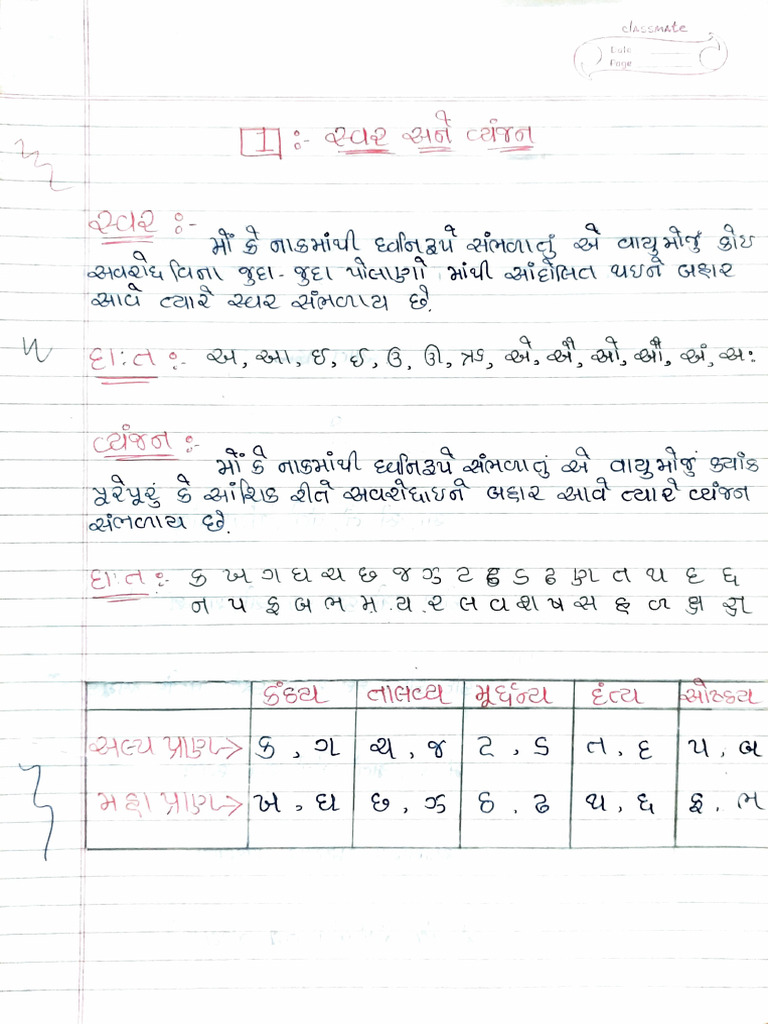 classmate
Date
Page
1 :- સ્વર અને વ્યંજન
સ્વર :-
મોં કે નાકમાંથી ધ્વનિરૂપે સંભળાતું એ વાયુમોજું કોઇ
અવરોધ વિના જુદા-જુદા પોલાણો માંથી આંદોલિત થઇને બહાર
આવે ત્યારે સ્વર સંભળાય છે.
દા:ત :- અ, આ, ઇ, ઈ, ઉ, ઊ, ઋ, એ, ઐ, ઓ, ઔ, અં, અઃ
વ્યંજન :-
મોં કે નાકમાંથી ધ્વનિરૂપે સંભળાતું એ વાયુમોજું ક્યાંક
પૂરેપૂરું કે આંશિક રીતે અવરોધાઇને બહાર આવે ત્યારે વ્યંજન
સંભળાય છે.
દા:ત :- ક ખ ગ ઘ ચ છ જ ઝ ટ ઠ ડ ઢ ણ ત થ દ ધ
ન પ ફ બ ભ મ ય ર લ વ શ ષ સ હ ળ ક્ષ જ્ઞ
કંઠ્ય તાલવ્ય મૂર્ધન્ય દંત્ય ઓષ્ઠ્ય
અલ્પ પ્રાણ → ક , ગ ચ , જ ટ , ડ ત , દ પ , બ
મહા પ્રાણ → ખ , ઘ છ , ઝ ઠ , ઢ થ , ધ ફ , ભ